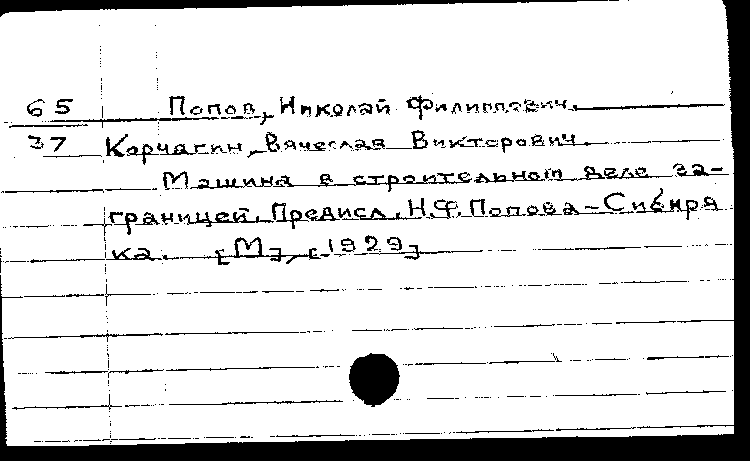 65 Попов, Николай Филиппович.
37 Корчагин, Вячеслав Викторович.
Машина в строительном деле за-
границей. Предисл. Н.Ф. Попова-Сибиря
ка. [М], [1929]